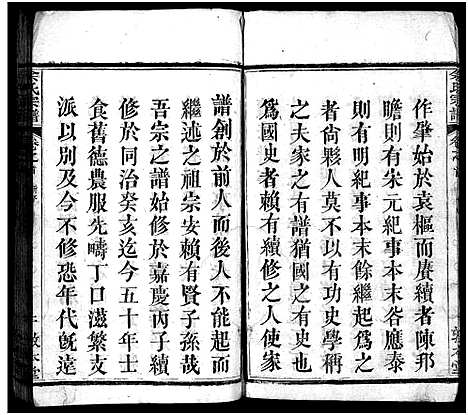 余氏宗譜
作肇始於袁樞而賡續者陳邦
瞻則有宋元紀事本末谷應泰
則有明史紀事本末餘繼起爲之
者尚數夥人莫不以有功史學稱
之夫家之有譜猶國之有史也
爲國史者賴有續修之人使家
譜創於前人而後人不能起而
繼述之祖宗安賴有賢子孫哉
吾宗之譜始修於嘉慶丙子再
修於同治癸亥迄今五十年士
食舊德農服先疇丁口滋繁支
派以別及今不修恐年代旣遠
余氏宗譜
敦本堂